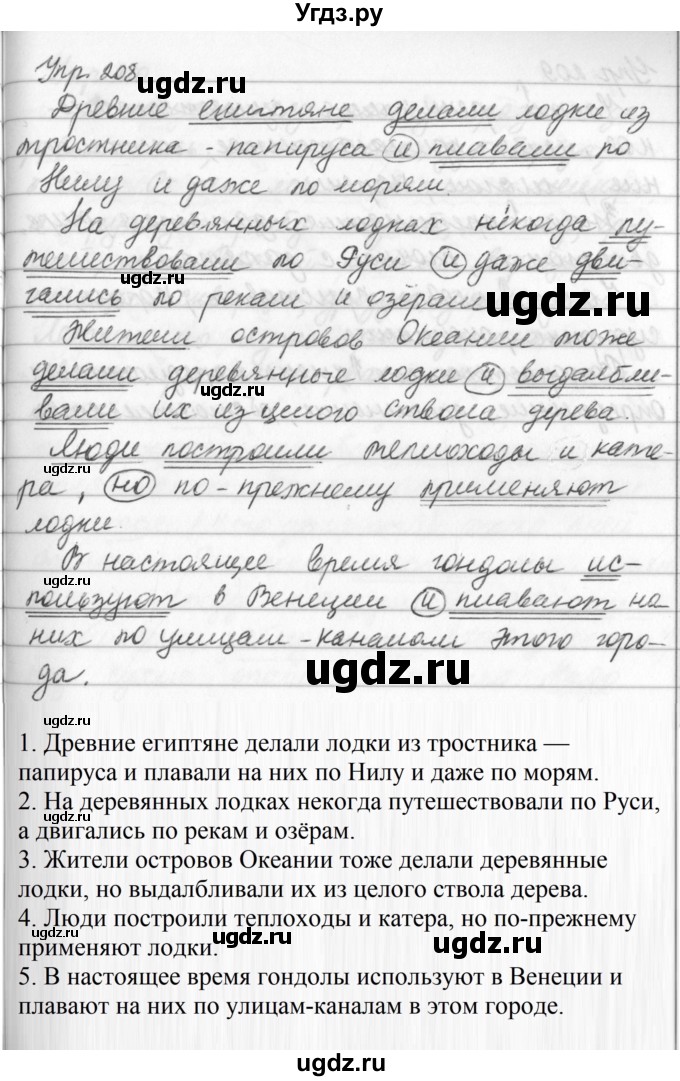 Угдз.ру
Упр. 208
Древние египтяне делали лодки из
тростника - папируса и плавали по
Нилу и даже по морям.
На деревянных лодках некогда пу-
тешествовали по Руси и даже дви-
гались по рекам и озёрам
Жители островов Океании тоже
делали деревянные лодки и выдалбли-
вали их из целого ствола дерева
Люди построили теплоходы и кате-
ра, но по-прежнему применяют
лодки.
В настоящее время гондолы ис-
пользуют в Венеции и плавают на
них по улицам-каналам этого горо-
да.
1. Древние египтяне делали лодки из тростника —
папируса и плавали на них по Нилу и даже по морям.
2. На деревянных лодках некогда путешествовали по Руси,
а двигались по рекам и озёрам.
3. Жители островов Океании тоже делали деревянные
лодки, но выдалбливали их из целого ствола дерева.
4. Люди построили теплоходы и катера, но по-прежнему
применяют лодки.
5. В настоящее время гондолы используют в Венеции и
плавают на них по улицам-каналам в этом городе.
ugdz.ru